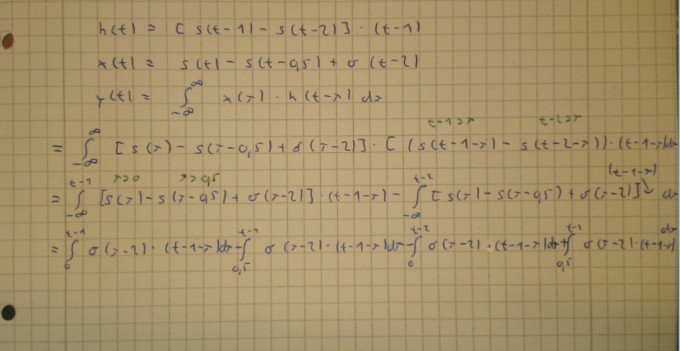 h(t) = [ s(t-1) - s(t-2)] · (t-1)
x(t) = s(t) - s(t-0,5) + σ(t-2)
y(t) = ∫_{-∞}^{∞} x(τ) · h(t-τ) dτ
t-1>τ t-2>τ
= ∫_{-∞}^{∞} [ s(τ) - s(τ-0,5) + σ(τ-2)] · [ (s(t-1-τ) - s(t-2-τ)) · (t-1-τ) dτ
τ>0 τ>0,5 (t-1-τ)
= ∫_{-∞}^{t-1} [s(τ) - s(τ-0,5) + σ(τ-2)] · (t-1-τ) - ∫_{-∞}^{t-2} [s(τ) - s(τ-0,5) + σ(τ-2)] dτ
= ∫_{0}^{t-1} σ(τ-2) · (t-1-τ) dτ - ∫_{0,5}^{t-1} σ(τ-2) · (t-1-τ) dτ - ∫_{0}^{t-2} σ(τ-2) · (t-1-τ) dτ + ∫_{0,5}^{t-2} σ(τ-2) · (t-1-τ) dτ